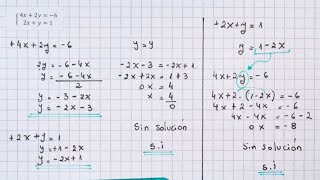 4x + 2y = −6
2x + y = 1
+4x+2y = -6
2y = -6-4x
y = -6-4x
2
y = -3-2x
y = -2x-3
+2x+y = 1
y = +1-2x
y = -2x+1
y = y
-2x-3 = -2x+1
-2x+2x = 1+3
0x = 4
x = 4
0
Sin solución
s.i
+2x+y = 1
y = 1-2x
4x+2y = -6
4x+2·(1-2x) = -6
4x+2-4x = -6
4x-4x = -6-2
0x = -8
Sin solución
s.i